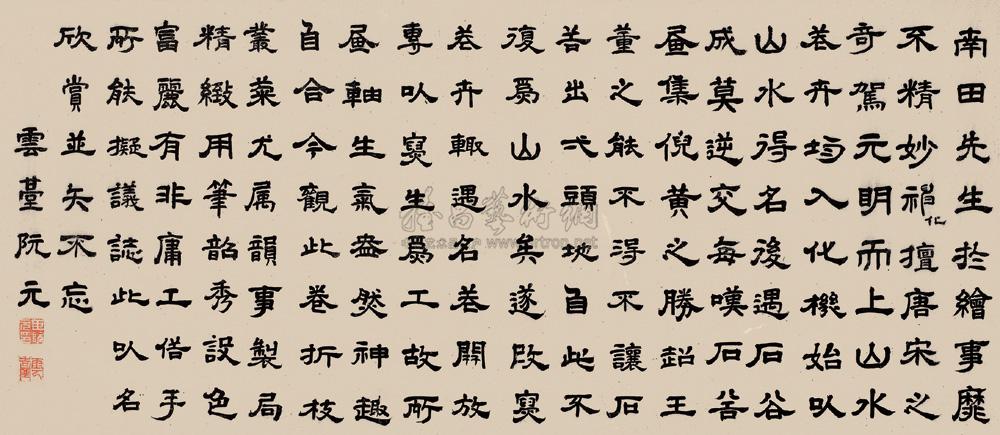 南田先生於繪事靡
不精妙化擅唐宋之
奇駕元明而上山水
花卉均入化機始以
山水得名後遇石谷
成莫逆交每嘆石谷
畫集倪黃之勝超王
董之能不得不讓石
谷出弌頭地自此不
復爲山水矣遂改寫
花卉輒遇名花開放
專以寫生爲工故所
畫軸生氣盎然神趣
自合今觀此卷折枝
叢葉尤屬韻事製局
精緻用筆韶秀設色
富麗有非庸工俗手
所能擬議誌此以名
欣賞並矢不忘
雲臺阮元
雅昌藝術網